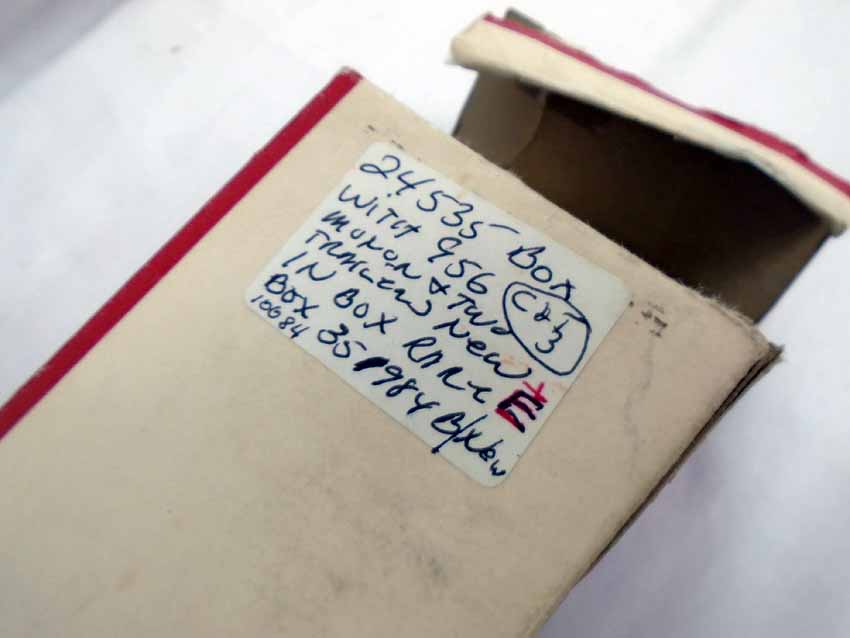 24535 BOX
WITH 956
MONON & TWO
TRAILERS NEW
IN BOX RARE
BOX 35 1984 B/New
10084
E